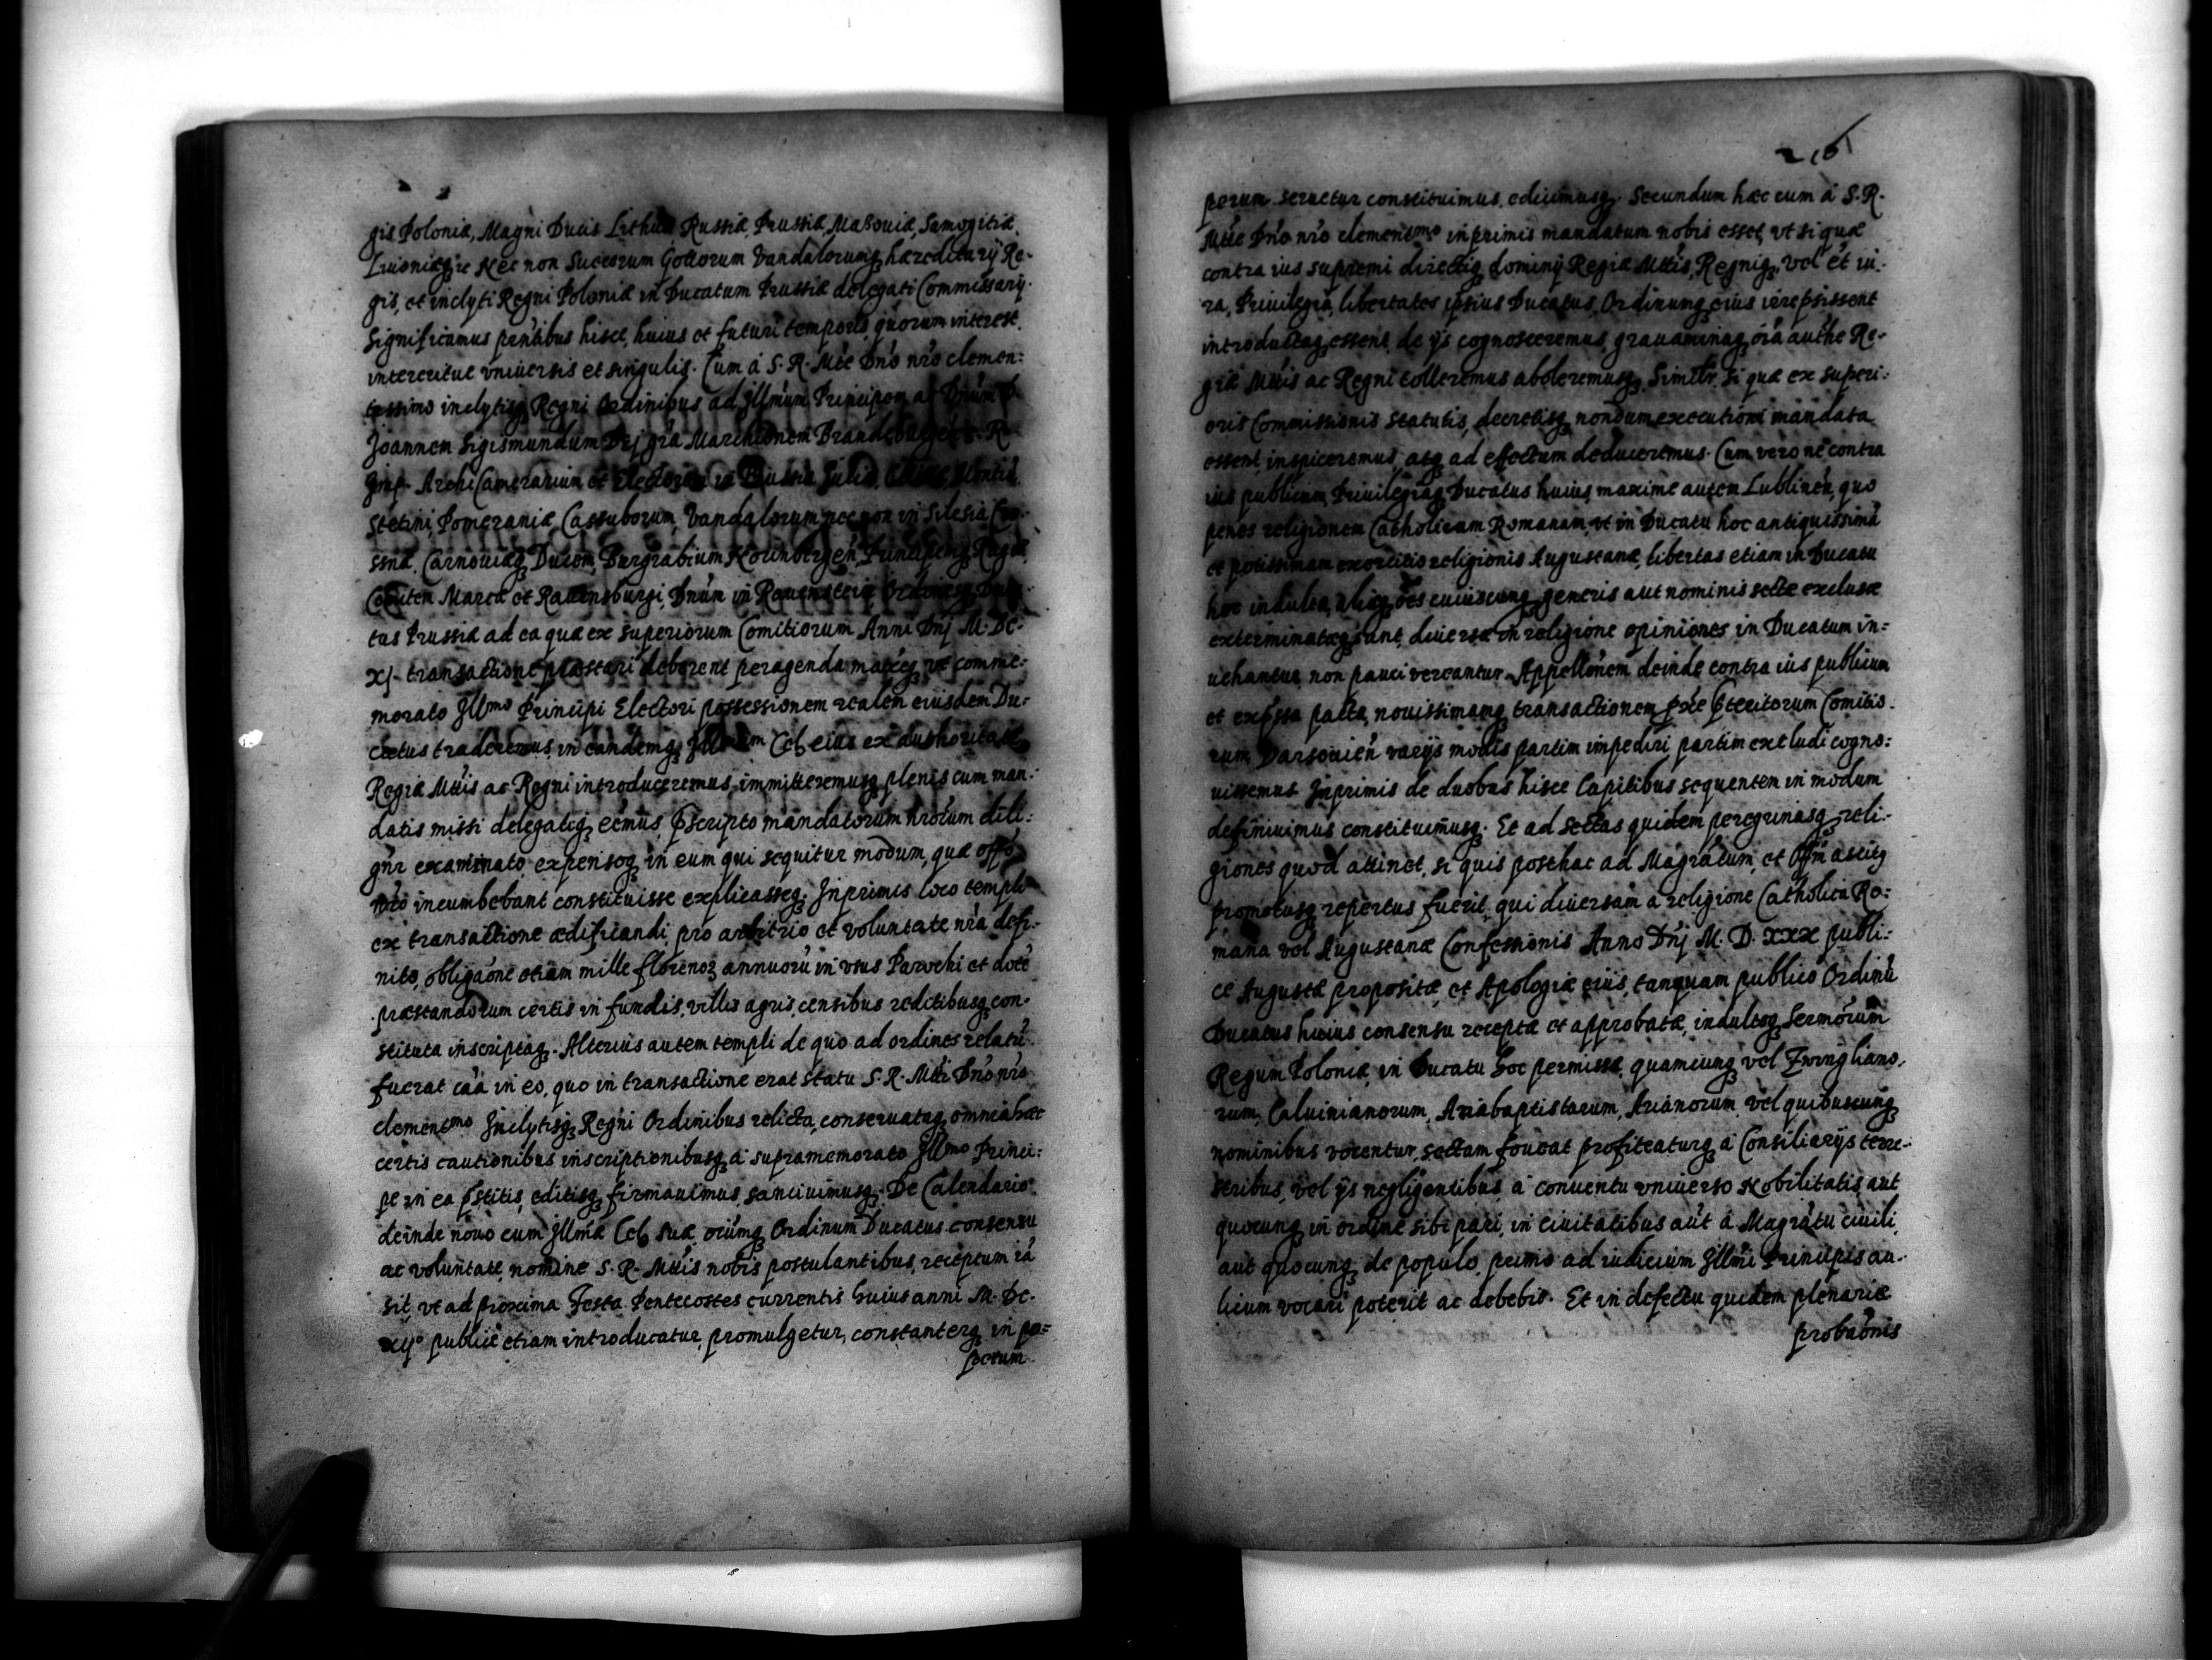 gis Poloniæ, Magni Ducis Lithuæ Russiæ, Prussiæ, Masouiæ, Samogitiæ,
Liuoniæq́ꝫ Nec non Sueorum Gottorum Vandalorumq́ꝫ hæreditarÿ Re-
gis, et inclyti Regni Poloniæ in Ducatum Prussiæ delegati Commissarÿ.
Significamus pn̄tibus hisce, huius et futuri temporis, quorum interest,
intereritue vniuersis et singulis. Cum à S. R. Mtte Dn̄o nr̄o clemen:
tissimo inclytisq́ꝫ Regni Ordinibus ad Jllm̄um Principem ac Dn̄um D.
Joannem Sigismundum Dej gr̄a Marchionem Brandeburgeñ S. R.
Jmp. ArchiCamerarium et Electorem in Prussia Juliæ, Cliuiæ, Montiũ
Stetini, Pomeraniæ, Cassuborum, Vandalorum nec non in Silesia Cro-
ssnæ, Carnouiæq́ꝫ Ducem, Burgrabium Norinbergeñ, Principemq́ꝫ Rugiæ,
Comitem Marcæ et Rauensburgi, Dn̄um in Rauenstein, Ordinesq́ꝫ Duca-
tus Prussiæ ad ea quæ ex superiorum Comitiorum Anni Dnj M. DC.
XJ. transactione præstari deberent peragenda, vt comme-
morato Jllmo Principi Electori possessionem realem eiusdem Du-
catus traderemus, in eandemq́ꝫ Jllmam Cels eius ex authoritate
Regiæ Mttis ac Regni introduceremus, immitteremusq́ꝫ plenis cum man-
datis missi delegatiq́ꝫ eẽmus, Pscripto mandatorum nr̄orum dili:
gn̄r examinato, expensoq́ꝫ in eum qui sequitur modum, quæ offo
nr̄o incumbebant constituisse explicasseq́ꝫ. Jnprimis loco templi
ex transactione ædificandi, pro arbitrio et voluntate nr̄a defi-
nito, obligaõne etiam mille florenoꝝ annuorũ in vsus Parochi et dotẽ
præstandorum certis in fundis, villis agris, censibus reditibusq́ꝫ con-
stituta inscriptaq́ꝫ. Alterius autem templi de quo ad ordines relatũ
fuerat cãa in eo, quo in transactione erat statu S. R. Mtti Dn̄o nr̄o
clementmo Jnclytisq́ꝫ Regni Ordinibus relicta, conseruataq́ꝫ, omnia hæc
certis cautionibus inscriptionibusq́ꝫ à supramemorato Jllmo Princi:
pe in ea pstitis, editisq́ꝫ firmauimus, sanciuimusq́ꝫ. De Calendario
deinde nouo cum Jllma Cels sua, oiũmq́ꝫ Ordinum Ducatus consensu
ac voluntate, nomine S. R. Mttis nobis postulantibus, receptum ià
sit, vt ad proxima Festa Pentecostes currentis huius anni M. DC.
XIJo publicè etiam introducatur, promulgetur, constanterq́ꝫ in per-
petuum
216
petuum seruetur constituimus, edicimusq́ꝫ. Secundum hæc cum à S. R.
Mtte Dn̄o nr̄o clementmo inprimis mandatum nobis esset, vt si quæ
contra ius supremi directiq́ꝫ dominÿ Regiæ Mttis, Regniq́ꝫ, vel et iu-
ra, Priuilegia, libertates ipsius Ducatus, Ordinumq́ꝫ eius irrepsissent
introductaq́ꝫ essent, de ÿs cognosceremus, grauaminaq́ꝫ oĩa authe Re-
giæ Mttis ac Regni tolleremus aboleremusq́ꝫ. Similr̃ si quæ ex superi-
oris Commissionis statutis, decretisq́ꝫ nondum executioni mandata
essent inspiceremus, atq́ꝫ ad effectum deduceremus. Cum vero ne contra
ius publicum Priuilegiaq́ꝫ Ducatus huius, maxime autem Lublineñ, quo
penes religionem Catholicam Romanam, vt in Ducatu hoc antiquissimã
et potissimam exercitio religionis Augustanæ, libertas etiam in Ducatu
hoc indulta, aliæq́ꝫ oẽs cuiuscunq́ꝫ generis aut nominis sectæ exclusæ
exterminatæq́ꝫ sunt, diuersæ in religione opiniones in Ducatum in-
uehantur non pauci vereantur. Appellõnem deinde contra ius publicum
et exp̃ssa pacta, nouissimamq́ꝫ transactionem pteritorum Comitio-
rum Varsouieñ varÿs modis partim impediri partim excludi cogno-
uissemus. Jnprimis de duobus hisce Capitibus sequentem in modum
definiuimus constituimusq́ꝫ. Et ad sectas quidem peregrinasq́ꝫ reli-
giones quod attinet, si quis posthac ad Magrãtum, et Offm ascitq́
promotusq́ꝫ repertus fuerit, qui diuersam a religione Catholica Ro-
mana vel Augustanæ Confessionis Anno Dnj M. D. XXX publi-
ce Augustæ propositæ, et Apologiæ eius, tanquam publico Ordinũ
Ducatus huius consensu receptæ et approbatæ, indultoq́ꝫ Sermõrum
Regum Poloniæ, in Ducatu hoc permissæ, quamcunq́ꝫ vel Zwingliano-
rum, Caluinianorum, Anabaptistarum, Arianorum, vel quibuscunq́ꝫ
nominibus vocentur, sectam foueat profiteaturq́ꝫ à Consiliarÿs terre-
stribus, vel ÿs negligentibus à conuentu vniuerso Nobilitatis, aut
quocunq́ꝫ in ordine sibi pari, in ciuitatibus aut à Magrãtu ciuili,
aut quocunq́ꝫ de populo, primo ad iudicium Jllmi Principis au-
licum vocari poterit ac debebit. Et in defectu quidem plenariæ
probaõnis